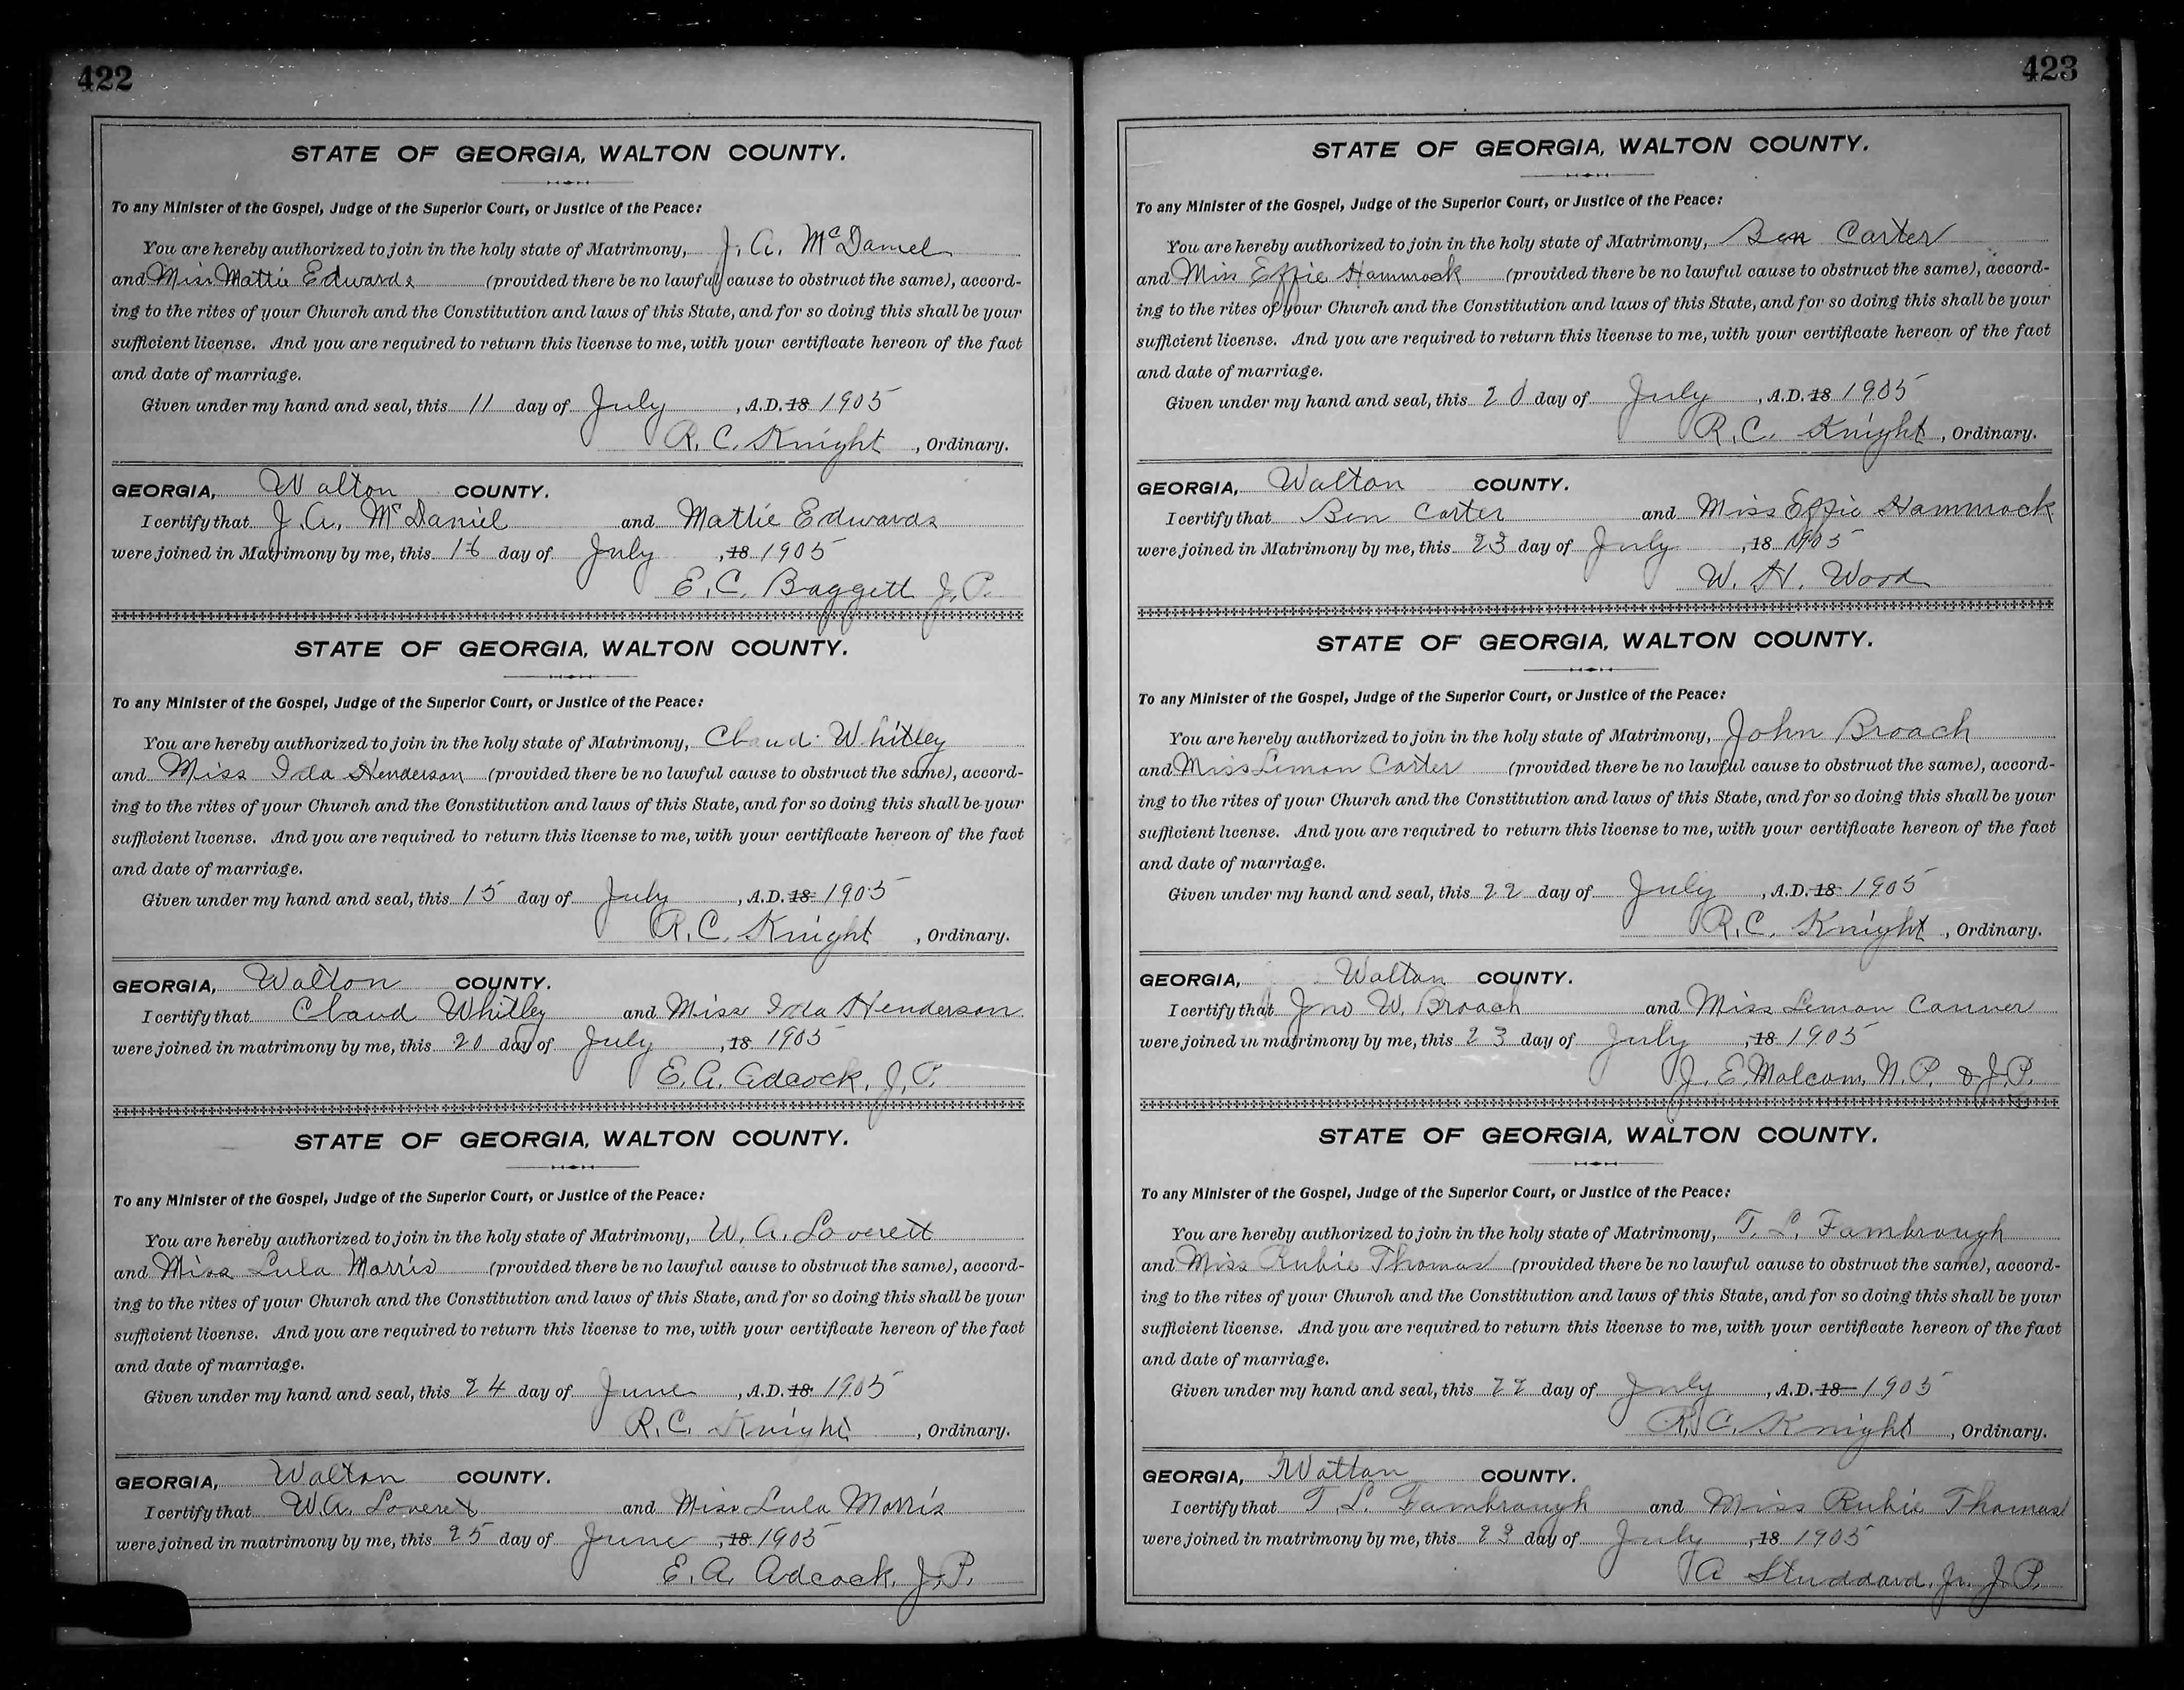 422
STATE OF GEORGIA, WALTON COUNTY.
To any Minister of the Gospel, Judge of the Superior Court, or Justice of the Peace:
You are hereby authorized to join in the holy state of Matrimony, J. A. McDaniel
and Miss Mattie Edwards (provided there be no lawful cause to obstruct the same), accord-
ing to the rites of your Church and the Constitution and laws of this State, and for so doing this shall be your
sufficient license. And you are required to return this license to me, with your certificate hereon of the fact
and date of marriage.
Given under my hand and seal, this 11 day of July, A.D. 18 1905
R. C. Knight, Ordinary.
GEORGIA, Walton COUNTY.
I certify that J. A. McDaniel and Mattie Edwards
were joined in Matrimony by me, this 16 day of July, 18 1905
E. C. Baggett J. P.
STATE OF GEORGIA, WALTON COUNTY.
To any Minister of the Gospel, Judge of the Superior Court, or Justice of the Peace:
You are hereby authorized to join in the holy state of Matrimony, Claud Whitley
and Miss Ida Henderson (provided there be no lawful cause to obstruct the same), accord-
ing to the rites of your Church and the Constitution and laws of this State, and for so doing this shall be your
sufficient license. And you are required to return this license to me, with your certificate hereon of the fact
and date of marriage.
Given under my hand and seal, this 15 day of July, A.D. 18 1905
R. C. Knight, Ordinary.
GEORGIA, Walton COUNTY.
I certify that Claud Whitley and Miss Ida Henderson
were joined in matrimony by me, this 20 day of July, 18 1905
E. A. Adcock, J. P.
STATE OF GEORGIA, WALTON COUNTY.
To any Minister of the Gospel, Judge of the Superior Court, or Justice of the Peace:
You are hereby authorized to join in the holy state of Matrimony, W. A. Loverett
and Miss Lula Morris (provided there be no lawful cause to obstruct the same), accord-
ing to the rites of your Church and the Constitution and laws of this State, and for so doing this shall be your
sufficient license. And you are required to return this license to me, with your certificate hereon of the fact
and date of marriage.
Given under my hand and seal, this 24 day of June, A.D. 18 1905
R. C. Knight, Ordinary.
GEORGIA, Walton COUNTY.
I certify that W. A. Loveret and Miss Lula Morris
were joined in matrimony by me, this 25 day of June, 18 1905
E. A. Adcock, J. P.
423
STATE OF GEORGIA, WALTON COUNTY.
To any Minister of the Gospel, Judge of the Superior Court, or Justice of the Peace:
You are hereby authorized to join in the holy state of Matrimony, Ben Carter
and Miss Effie Hammock (provided there be no lawful cause to obstruct the same), accord-
ing to the rites of your Church and the Constitution and laws of this State, and for so doing this shall be your
sufficient license. And you are required to return this license to me, with your certificate hereon of the fact
and date of marriage.
Given under my hand and seal, this 20 day of July, A.D. 18 1905
R. C. Knight, Ordinary.
GEORGIA, Walton COUNTY.
I certify that Ben Carter and Miss Effie Hammock
were joined in Matrimony by me, this 23 day of July, 18 1905
W. H. Wood
STATE OF GEORGIA, WALTON COUNTY.
To any Minister of the Gospel, Judge of the Superior Court, or Justice of the Peace:
You are hereby authorized to join in the holy state of Matrimony, John Broach
and Miss Limon Carter (provided there be no lawful cause to obstruct the same), accord-
ing to the rites of your Church and the Constitution and laws of this State, and for so doing this shall be your
sufficient license. And you are required to return this license to me, with your certificate hereon of the fact
and date of marriage.
Given under my hand and seal, this 22 day of July, A.D. 18 1905
R. C. Knight, Ordinary.
GEORGIA, Walton COUNTY.
I certify that Jno W. Broach and Miss Lemon Conner
were joined in matrimony by me, this 23 day of July, 18 1905
J. E. Malcom, N. P. & J. P.
STATE OF GEORGIA, WALTON COUNTY.
To any Minister of the Gospel, Judge of the Superior Court, or Justice of the Peace:
You are hereby authorized to join in the holy state of Matrimony, T. L. Fambrough
and Miss Rubie Thomas (provided there be no lawful cause to obstruct the same), accord-
ing to the rites of your Church and the Constitution and laws of this State, and for so doing this shall be your
sufficient license. And you are required to return this license to me, with your certificate hereon of the fact
and date of marriage.
Given under my hand and seal, this 22 day of July, A.D. 18 1905
R. C. Knight, Ordinary.
GEORGIA, Walton COUNTY.
I certify that T. L. Fambrough and Miss Rubie Thomas
were joined in matrimony by me, this 23 day of July, 18 1905
A Studdard, Jr. J. P.